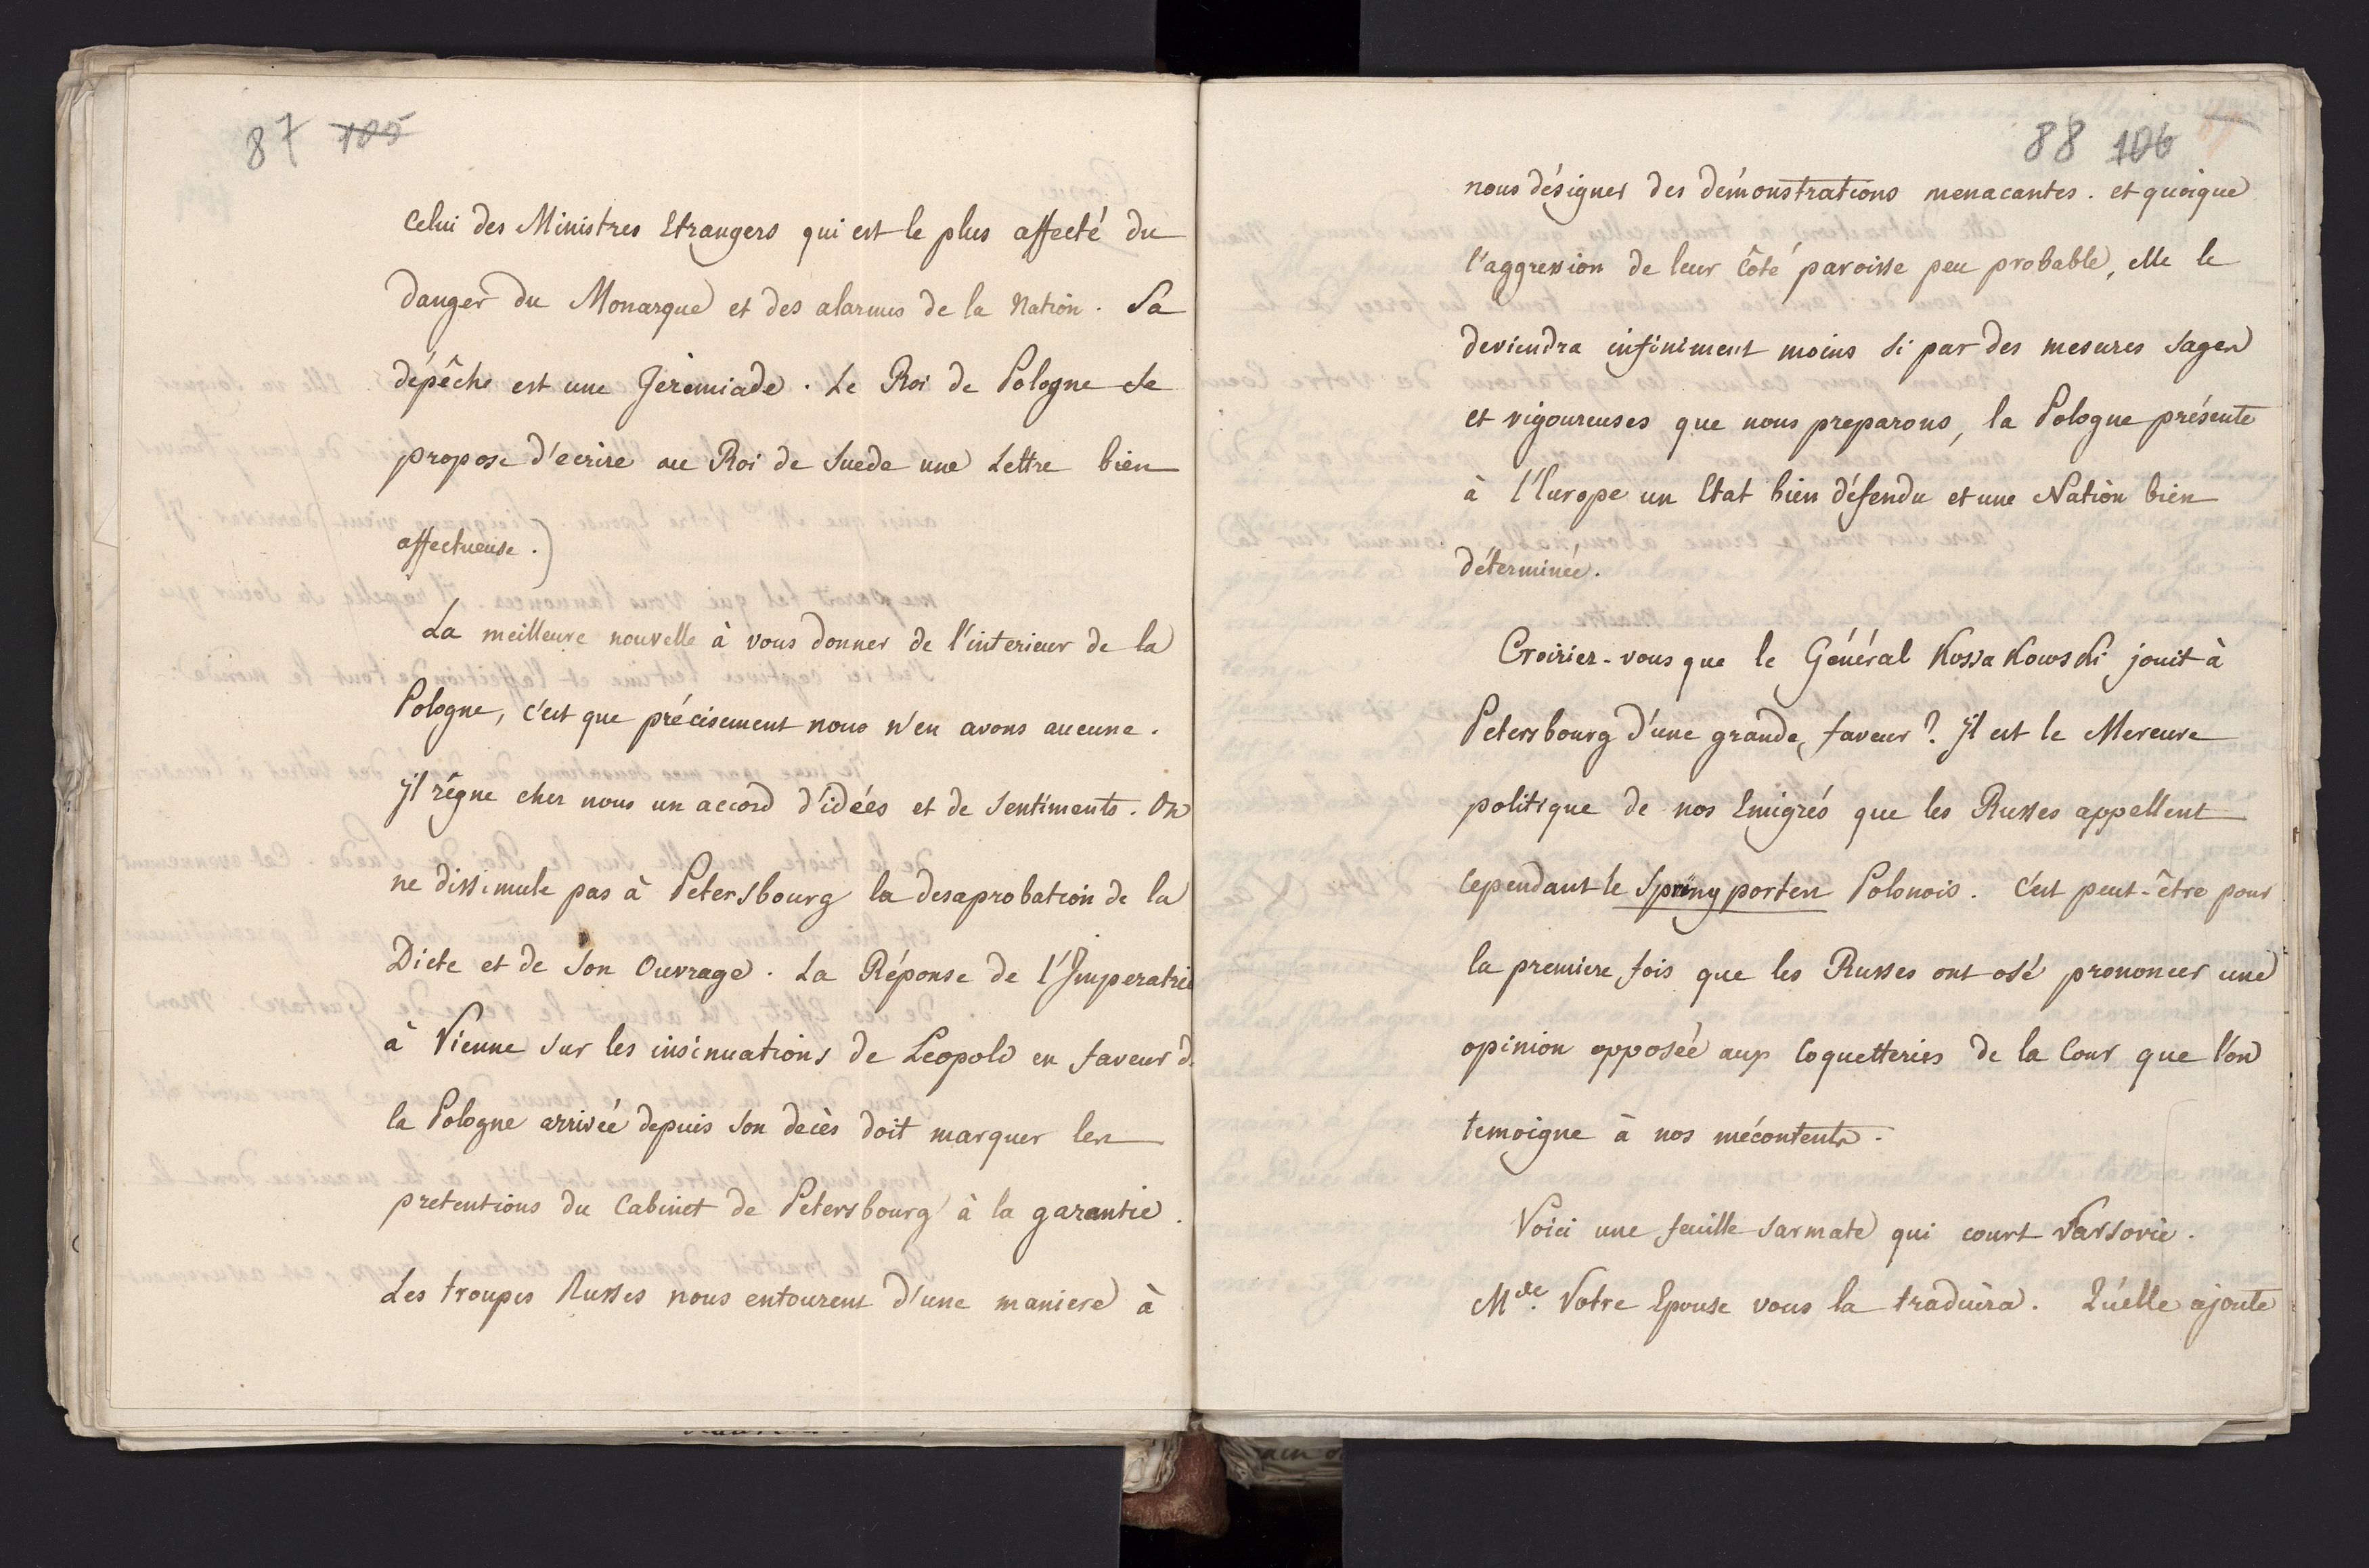 87 105
Celui des Ministres Etrangers qui est le plus affecté du
danger du Monarque et des alarmes de la Nation. Sa
dépêche est une Jérémiade. Le Roi de Pologne se
propose d'ecrire au Roi de Suede une Lettre bien
affectueuse.)
La meilleure nouvelle à vous donner de l'interieur de la
Pologne, c'est que précisement nous n'en avons aucune.
Jl règne chez nous un accord d'idées et de Sentiments. On
ne dissimule pas à Petersbourg la desaprobation de la
Diete et de Son Ouvrage. La Réponse de l'Jmperatrice
à Vienne sur les insinuations de Leopold en faveur d.
la Pologne arrivée depuis Son decès doit marquer les
pretentions du Cabinet de Petersbourg à la garantie.
Les troupes Russes nous entourent d'une maniere à
88 106
nous désigner des démonstrations menacantes. et quoique
l'aggression de leur côté paroisse peu probable, elle le
deviendra infiniment moins si par des mesures Sages
et vigoureuses que nous preparons, la Pologne présente
à l'Europe un Etat bien défendu et une Nation bien
déterminée.
Croiriez-vous que le Général Kossakowski jouit à
Petersbourg d'une grande faveur? Jl est le Mercure
politique de nos Emigrés que les Russes appellent
cependant le Springporten Polonois. C'est peut-être pour
la premiere fois que les Russes ont osé prononcer une
opinion opposée aux Coquetteries de la Cour que l'on
temoigne à nos mécontents.
Voici une feuille Sarmate qui court Varsovie.
Mde. Votre Epouse vous la traduira. Qu'elle ajoute